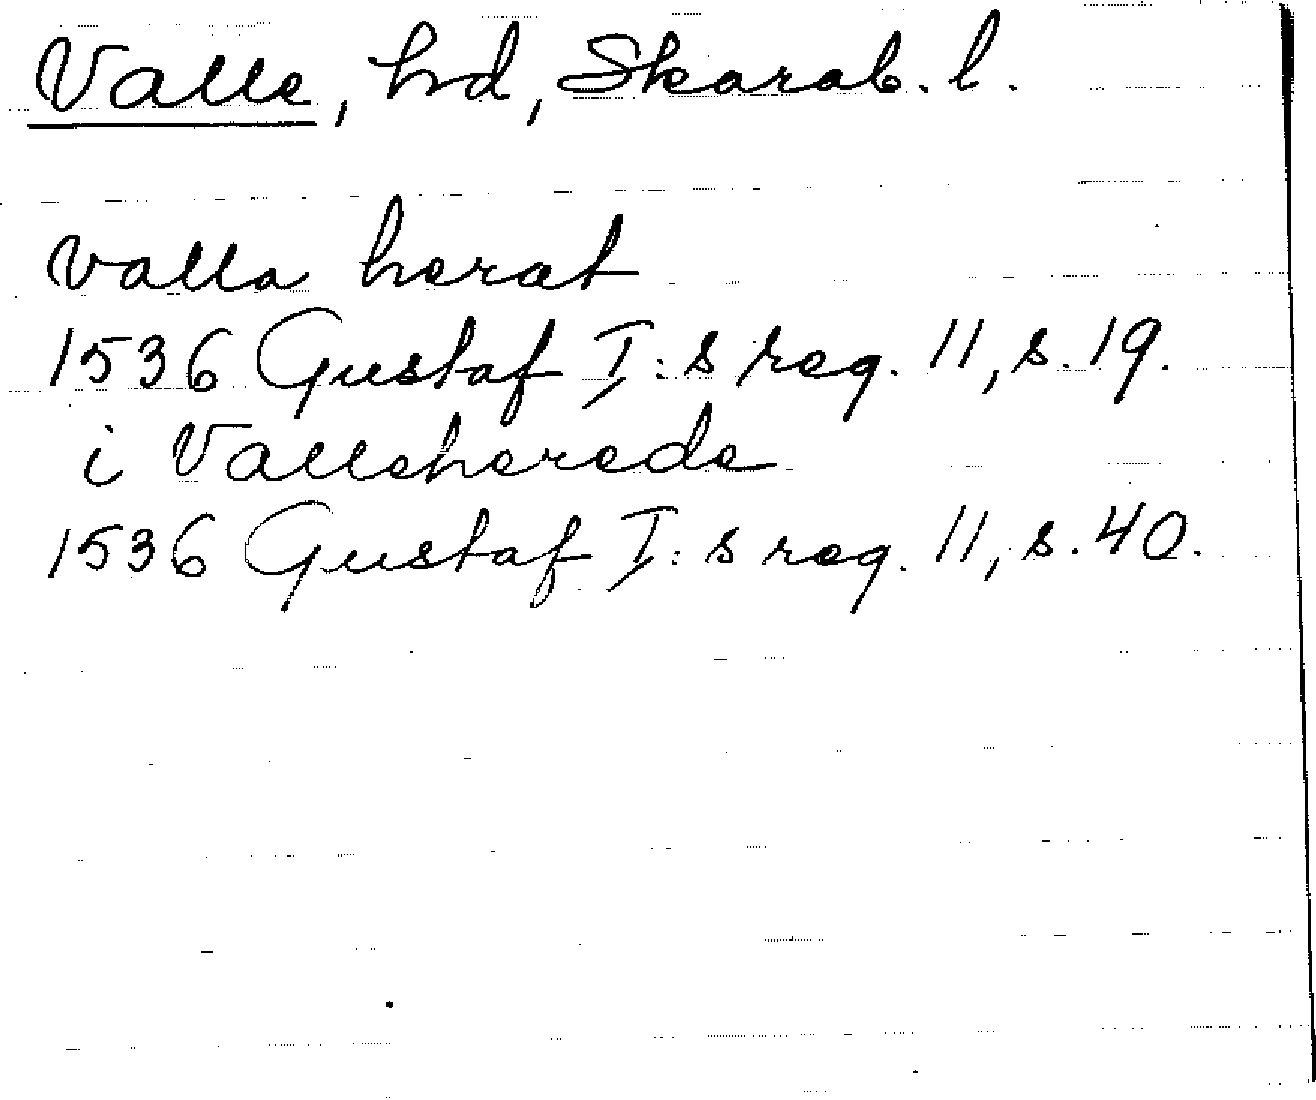 Valle, hd, Skarab. l.
valla herat
1536 Gustaf I:s reg. 11, s. 19.
i Valleherede
1536 Gustaf I:s reg. 11, s. 40.